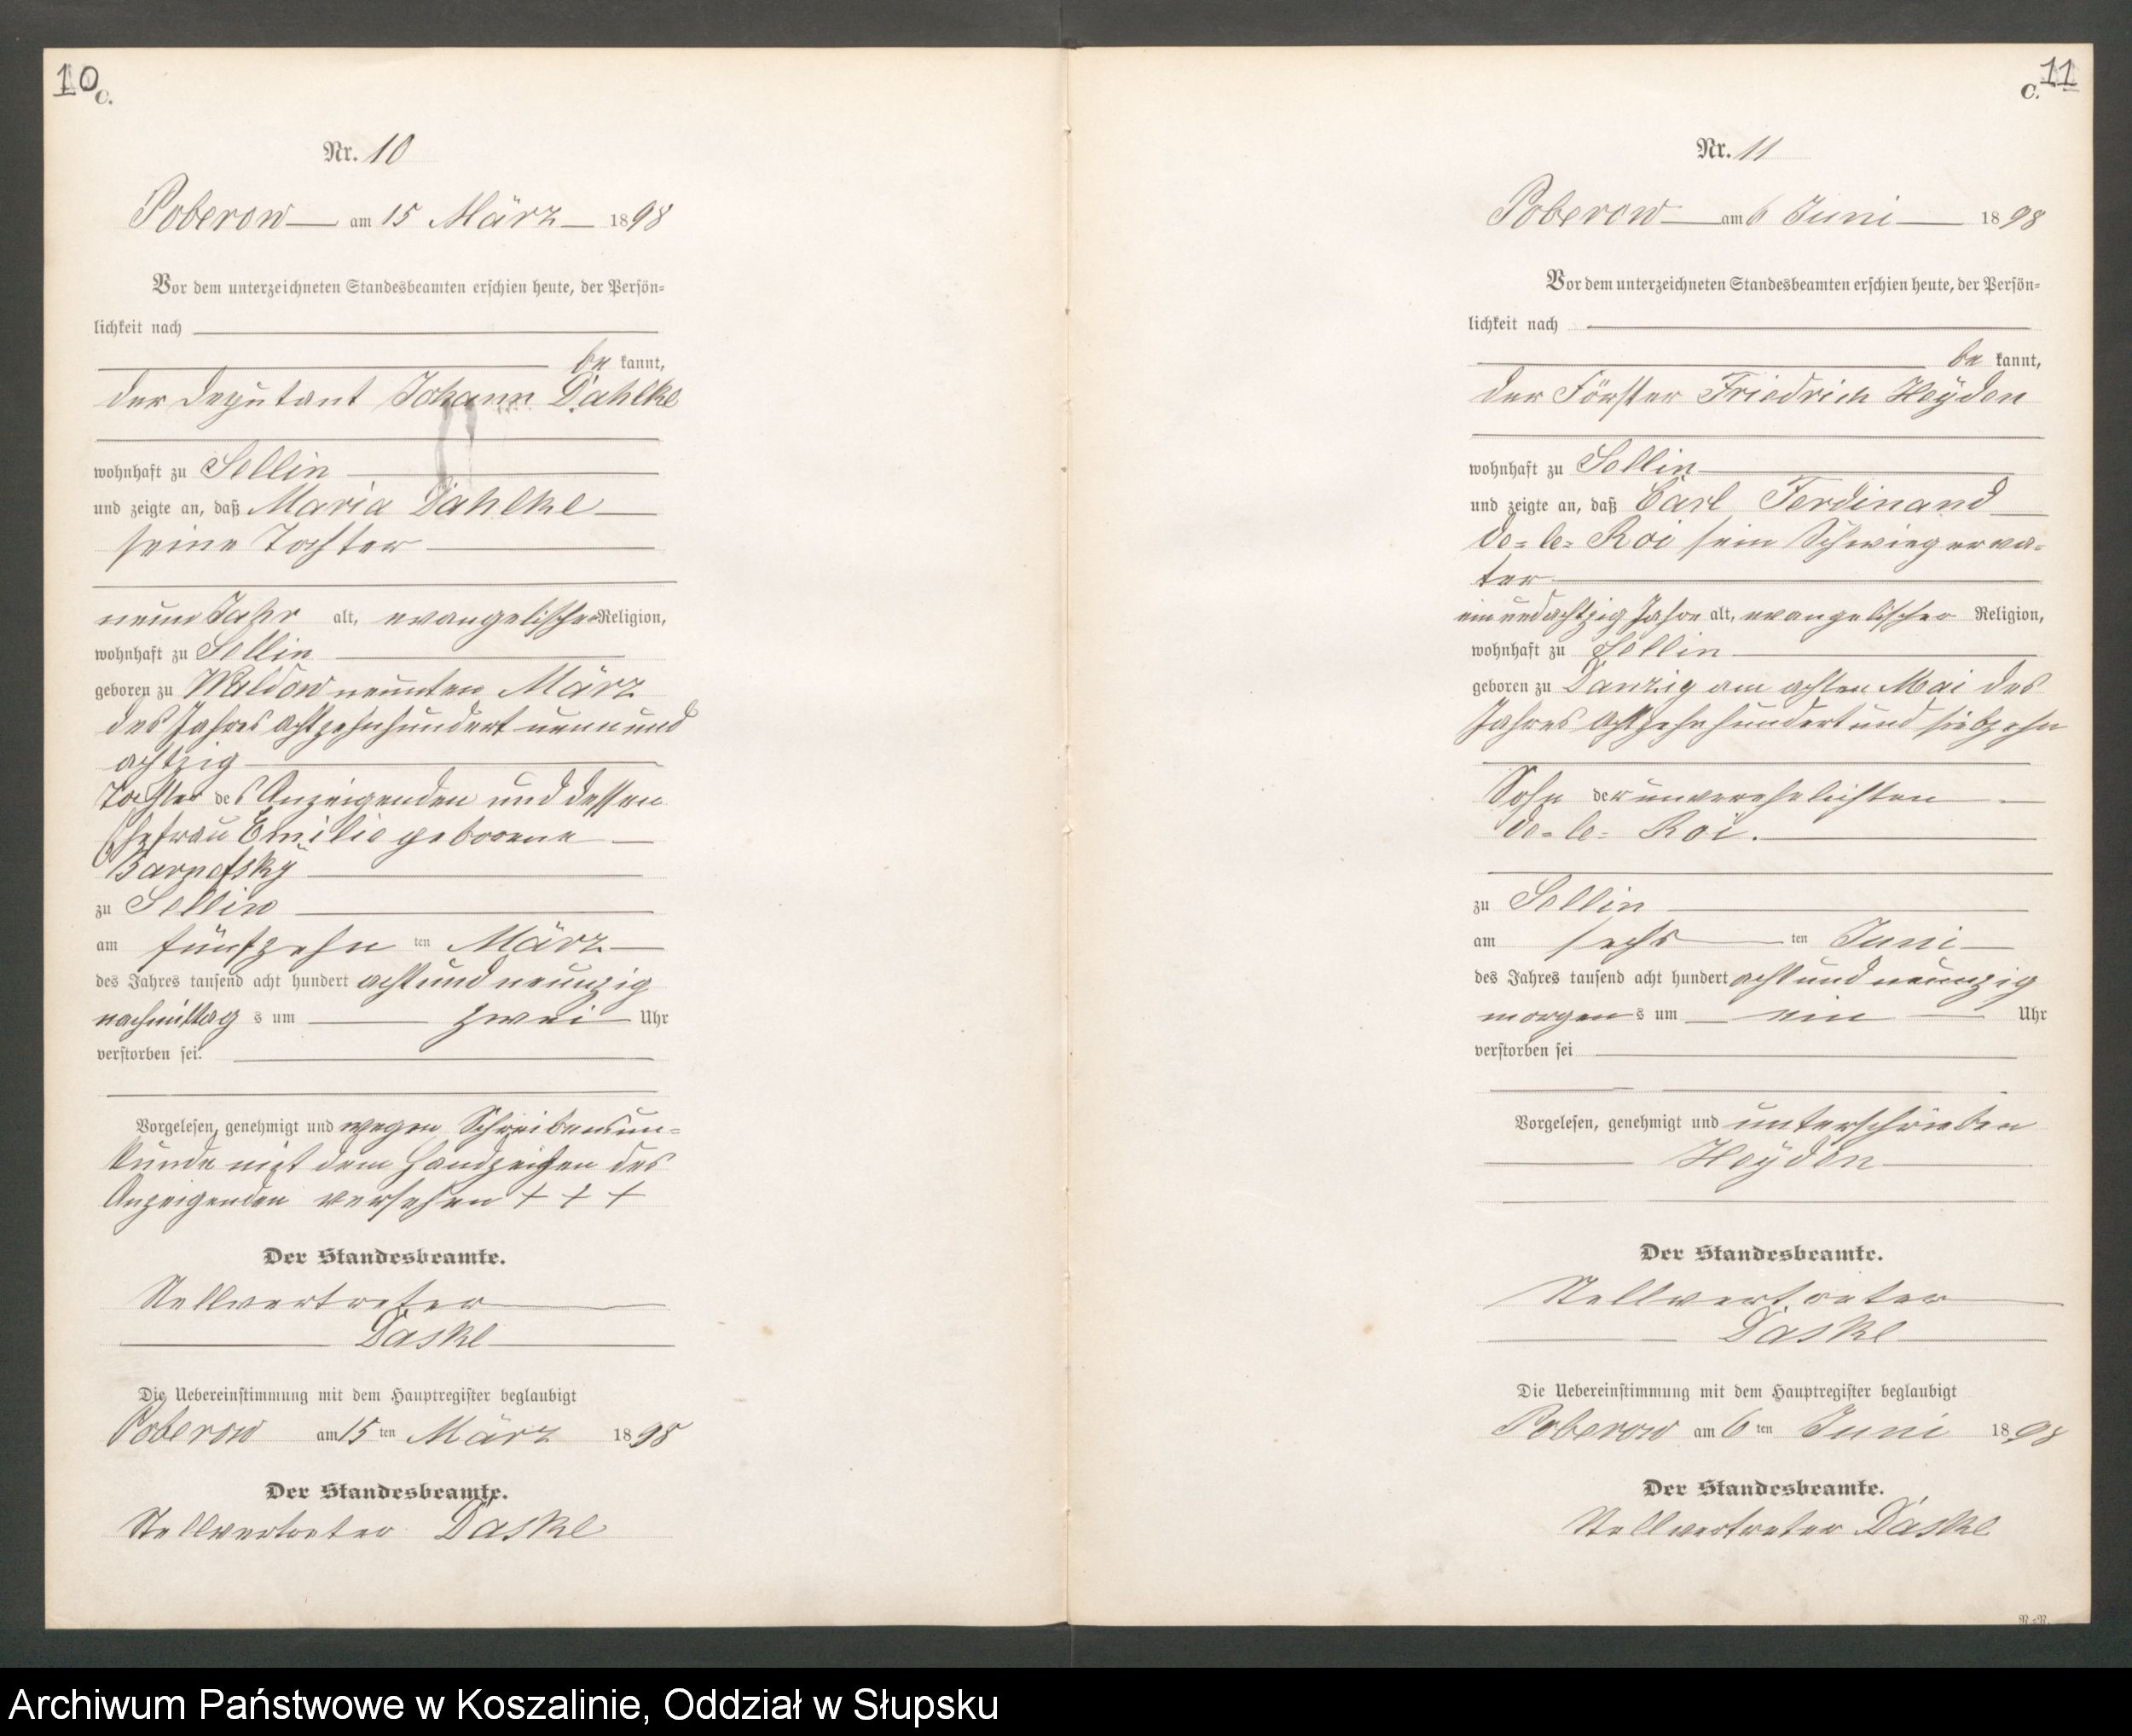 10
C.
Nr. 10
Poberow am 15 März 1898
Vor dem unterzeichneten Standesbeamten erschien heute, der Persön-
lichkeit nach
be kannt,
der Deputant Johann Dahlke
wohnhaft zu Sellin
und zeigte an, daß Maria Dahlke
seine Tochter
neun Jahr alt, evangelischer Religion,
wohnhaft zu Sellin
geboren zu Waldow neunten März
des Jahres achtzehnhundert neun und
achtzig
Tochter des Anzeigenden und dessen
Ehefrau Emilie geborene
zu Sellin
am fünfzehn ten März
des Jahres tausend acht hundert acht und neunzig
nachmittag s um zwei Uhr
verstorben sei.
Vorgelesen, genehmigt und wegen Schreibensun-
kunde mit dem Handzeichen des
Anzeigenden versehen + + +
Der Standesbeamte.
Stellvertreter
Daske
Die Uebereinstimmung mit dem Hauptregister beglaubigt
Poberow am 15 ten März 1898
Der Standesbeamte.
Stellvertreter Daske
11
C.
Nr. 11
Poberow am 6 Juni 1898
Vor dem unterzeichneten Standesbeamten erschien heute, der Persön-
lichkeit nach
be kannt,
der Förster Friedrich Heyden
wohnhaft zu Sellin
und zeigte an, daß Carl Ferdinand
de-le-Roi sein Schwiegerva-
ter
ein und achtzig Jahre alt, evangelischer Religion,
wohnhaft zu Sellin
geboren zu Danzig am achten Mai des
Jahres achtzehnhundert und siebzehn
Sohn der unverehelichten
de-le-Roi.
zu Sellin
am sechs ten Juni
des Jahres tausend acht hundert acht und neunzig
morgen s um ein Uhr
verstorben sei
Vorgelesen, genehmigt und unterschrieben
Heyden
Der Standesbeamte.
Stellvertreter
Daske
Die Uebereinstimmung mit dem Hauptregister beglaubigt
Poberow am 6 ten Juni 1898
Der Standesbeamte.
Stellvertreter Daske
Archiwum Państwowe w Koszalinie, Oddział w Słupsku